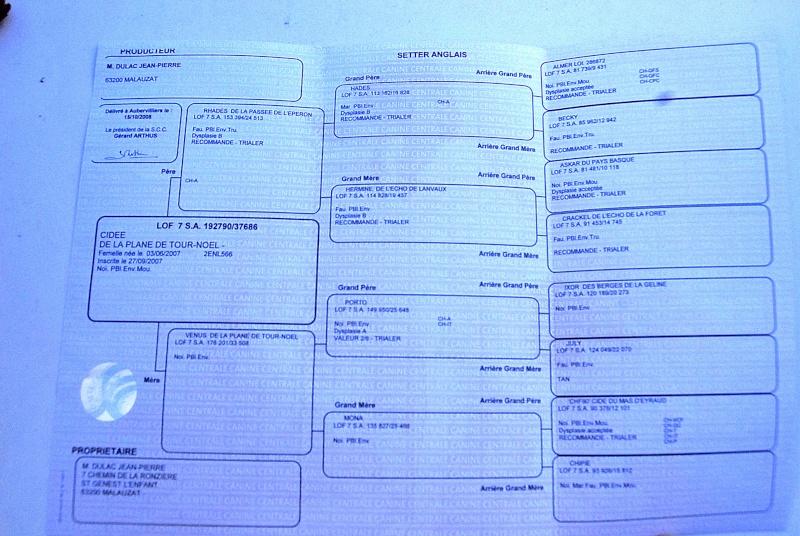 PRODUCTEUR
M. DULAC JEAN-PIERRE
63200 MALAUZAT
Délivré à Aubervilliers le :
15/10/2008
Le président de la S.C.C.
Gérard ARTHUS
SETTER ANGLAIS
Père
RHADES DE LA PASSEE DE L'EPERON
LOF 7 S.A. 153 394/24 513
Fau. PBl.Env.Tru.
Dysplasie B
RECOMMANDE - TRIALER
CH-A
LOF 7 S.A. 192790/37686
CIDEE
DE LA PLANE DE TOUR-NOEL -
Femelle née le 03/06/2007 2ENL566
Inscrite le 27/09/2007
Noi. PBl.Env.Mou.
Mère
VENUS DE LA PLANE DE TOUR-NOEL
LOF 7 S.A. 176 201/33 508
Noi. PBl.Env.
PROPRIETAIRE
M. DULAC JEAN-PIERRE
7 CHEMIN DE LA RONZIERE
ST GENEST L'ENFANT
63200 MALAUZAT
Grand Père
HADES
LOF 7 S.A. 113 162/19 828
Mar. PBl.Env.
Dysplasie B
RECOMMANDE - TRIALER
CH-A
Grand Mère
HERMINE DE L'ECHO DE LANVAUX
LOF 7 S.A. 114 828/19 437
Fau. PBl.Env.
Dysplasie B
RECOMMANDE - TRIALER
Grand Père
PORTO
LOF 7 S.A. 149 950/25 648
Noi. PBl.Env.
Dysplasie A
VALEUR 2/6 - TRIALER
CH-A
CH-IT
Grand Mère
MONA
LOF 7 S.A. 135 827/25 488
Noi. PBl.Env.
Arrière Grand Père
ALMER LOI 286872
LOF 7 S.A. 81 739/9 431
Noi. PBl.Env.Mou.
Dysplasie acceptée
RECOMMANDE - TRIALER
CH-GFS
CH-GFC
CH-CPC
Arrière Grand Mère
BECKY
LOF 7 S.A. 85 962/12 942
Fau. PBl.Env.Tru.
RECOMMANDE - TRIALER
Arrière Grand Père
ASKAR DU PAYS BASQUE
LOF 7 S.A. 81 481/10 118
Noi. PBl.Env.Mou.
Dysplasie acceptée
RECOMMANDE - TRIALER
Arrière Grand Mère
CRACKEL DE L'ECHO DE LA FORET
LOF 7 S.A. 91 453/14 745
Fau. PBl.Env.Tru.
RECOMMANDE - TRIALER
Arrière Grand Père
IXOR DES BERGES DE LA GELINE
LOF 7 S.A. 120 189/20 273
Noi. PBl.Env.
Arrière Grand Mère
JULY
LOF 7 S.A. 124 049/22 070
Fau. PBl.Env.
TAN
Arrière Grand Père
CHF90 CIDE DU MAS D'EYRAUD
LOF 7 S.A. 90 376/12 101
Noi. PBl.Env.Mou.
Dysplasie acceptée
RECOMMANDE - TRIALER
Arrière Grand Mère
CHIPIE
Noi. Mar.Fau. PBl.Env.Mou.